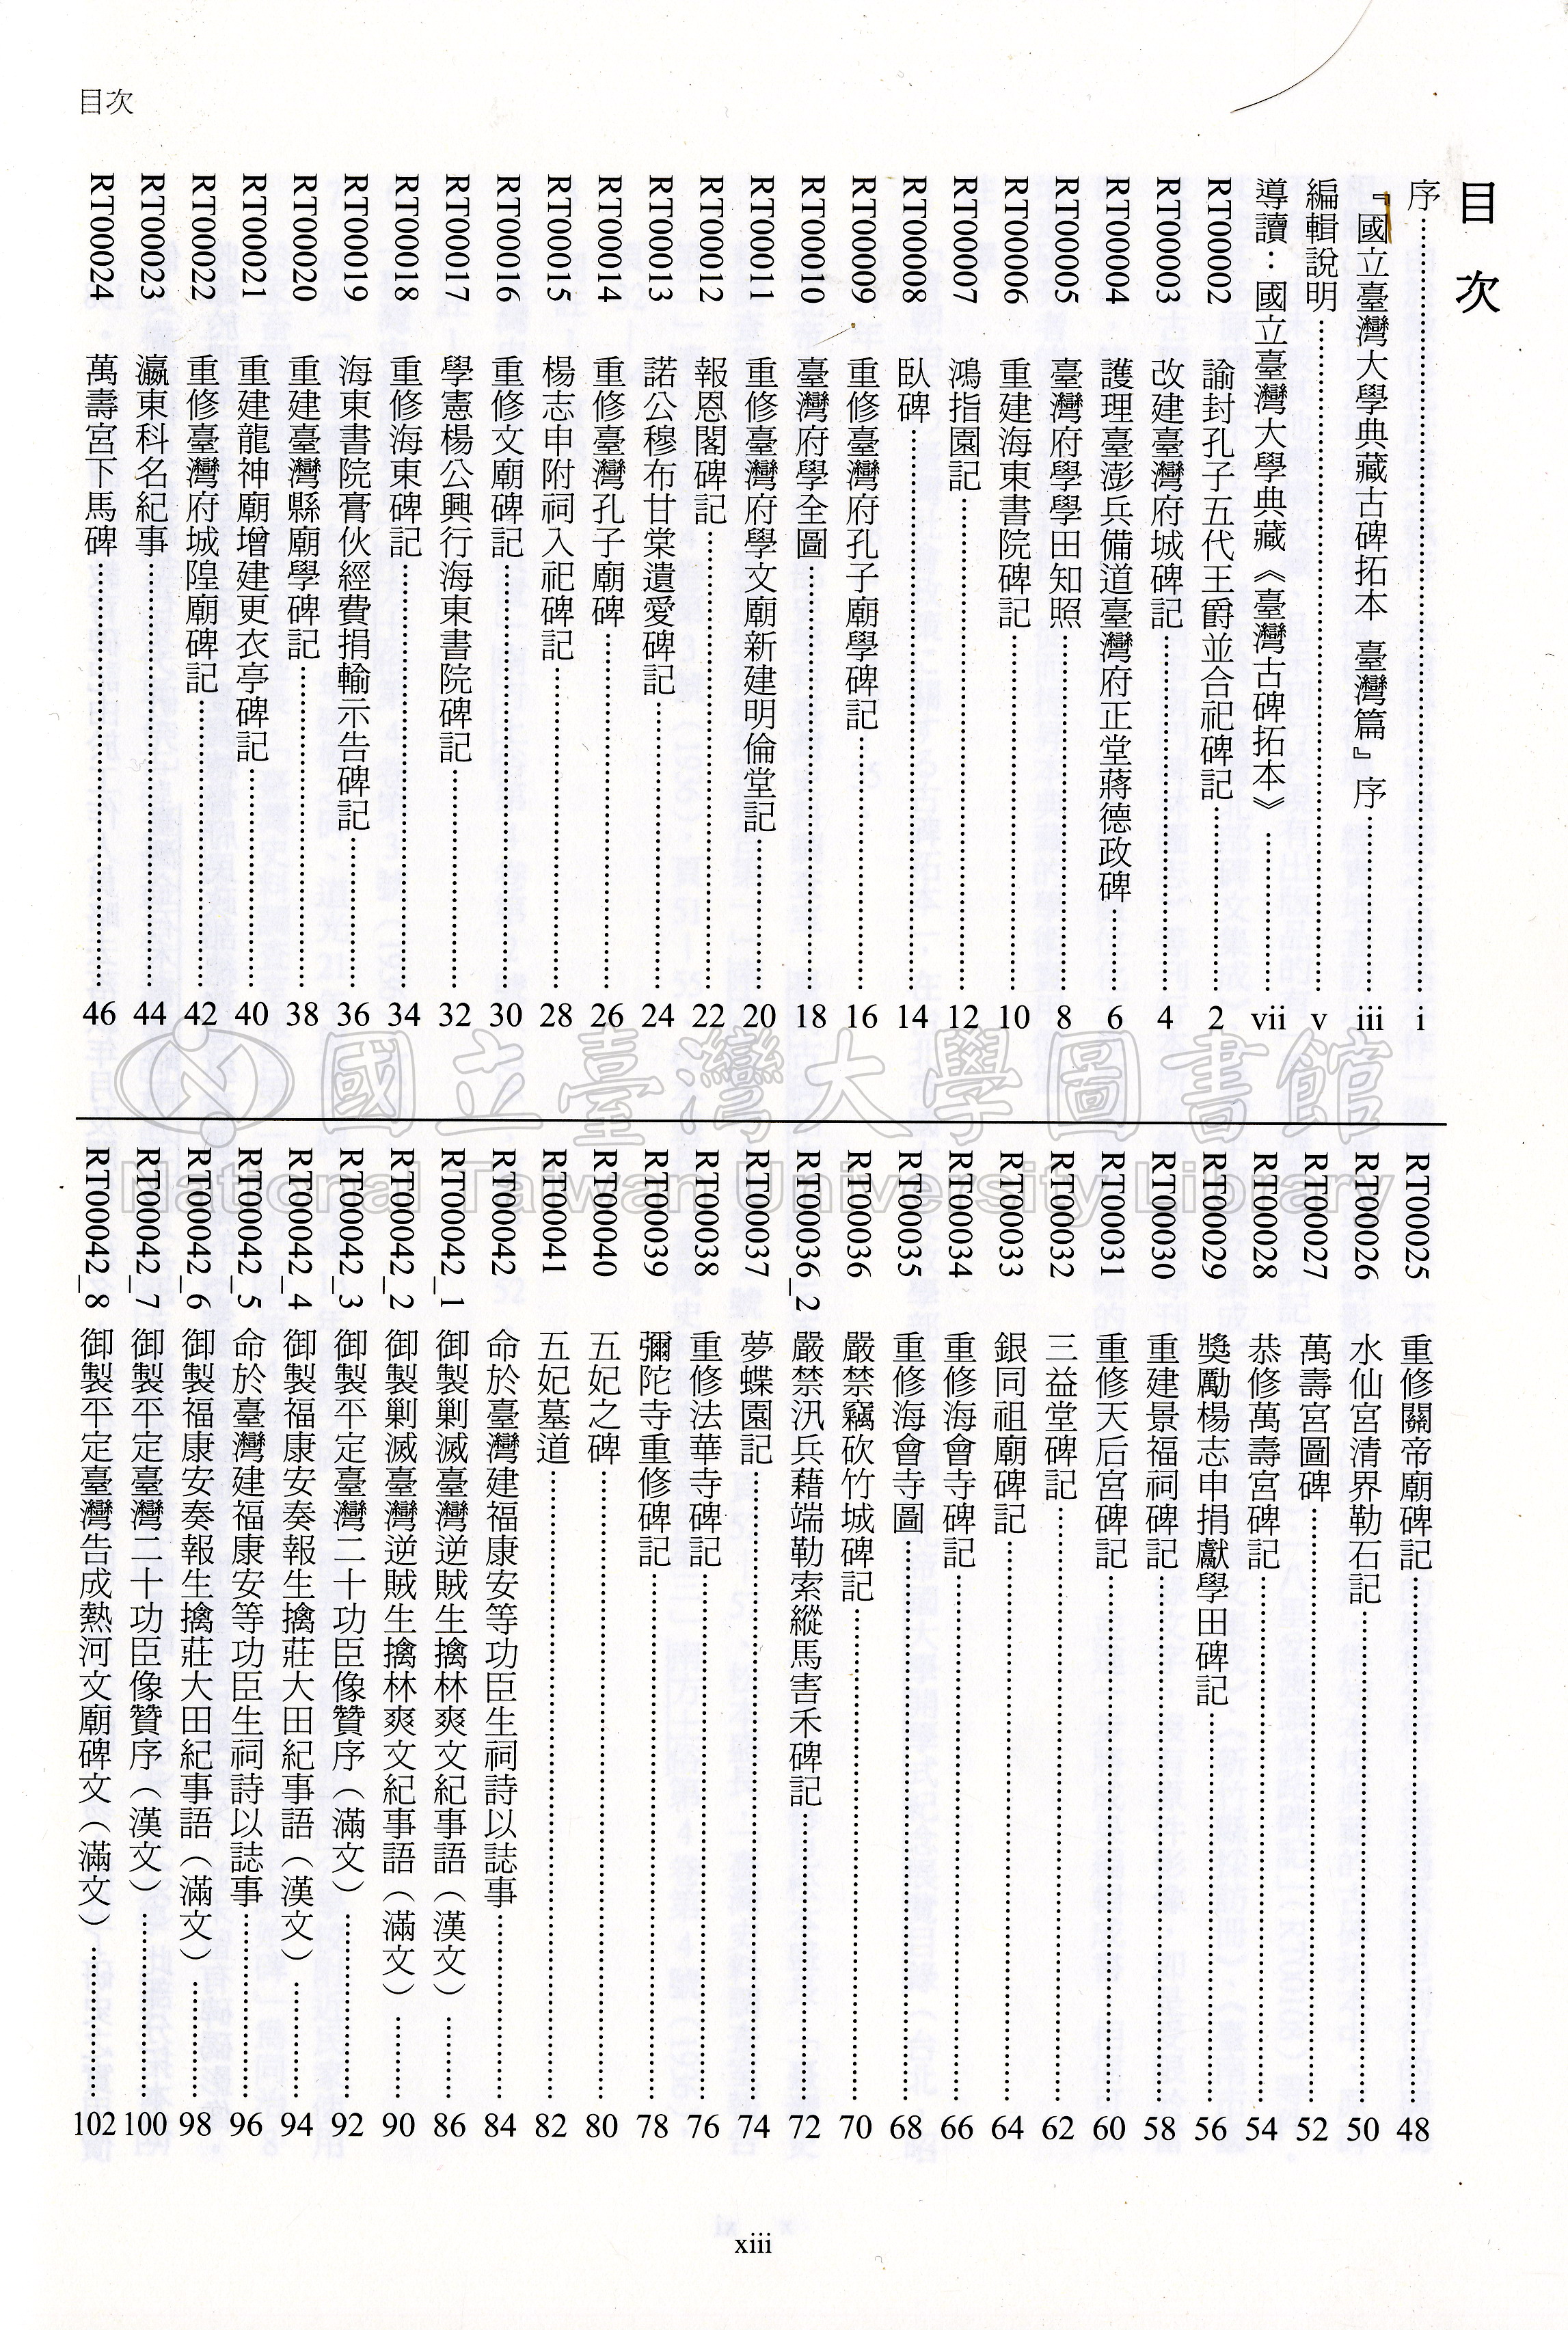 目次
目 次
序……i
『國立臺灣大學典藏古碑拓本 臺灣篇』序……iii
編輯說明……v
導讀：國立臺灣大學典藏《臺灣古碑拓本》……vii
RT00002 諭封孔子五代王爵並合祀碑記……2
RT00003 改建臺灣府城碑記……4
RT00004 護理臺澎兵備道臺灣府正堂蔣德政碑……6
RT00005 臺灣府學學田知照……8
RT00006 重建海東書院碑記……10
RT00007 鴻指園記……12
RT00008 臥碑……14
RT00009 重修臺灣府孔子廟學碑記……16
RT00010 臺灣府學全圖……18
RT00011 重修臺灣府學文廟新建明倫堂記……20
RT00012 報恩閣碑記……22
RT00013 諾公穆布甘棠遺愛碑記……24
RT00014 重修臺灣孔子廟碑……26
RT00015 楊志申附祠入祀碑記……28
RT00016 重修文廟碑記……30
RT00017 學憲楊公興行海東書院碑記……32
RT00018 重修海東碑記……34
RT00019 海東書院膏伙經費捐輸示告碑記……36
RT00020 重建臺灣縣廟學碑記……38
RT00021 重建龍神廟增建更衣亭碑記……40
RT00022 重修臺灣府城隍廟碑記……42
RT00023 瀛東科名紀事……44
RT00024 萬壽宮下馬碑……46
國立臺灣大學圖書館
National Taiwan University Library
RT00025 重修關帝廟碑記……48
RT00026 水仙宮清界勒石記……50
RT00027 萬壽宮圖碑……52
RT00028 恭修萬壽宮碑記……54
RT00029 獎勵楊志申捐獻學田碑記……56
RT00030 重建景福祠碑記……58
RT00031 重修天后宮碑記……60
RT00032 三益堂碑記……62
RT00033 銀同祖廟碑記……64
RT00034 重修海會寺碑記……66
RT00035 重修海會寺圖……68
RT00036 嚴禁竊砍竹城碑記……70
RT00036_2 嚴禁汛兵藉端勒索縱馬害禾碑記……72
RT00037 夢蝶園記……74
RT00038 重修法華寺碑記……76
RT00039 彌陀寺重修碑記……78
RT00040 五妃之碑……80
RT00041 五妃墓道……82
RT00042 命於臺灣建福康安等功臣生祠詩以誌事……84
RT00042_1 御製剿滅臺灣逆賊生擒林爽文紀事語（漢文）……86
RT00042_2 御製剿滅臺灣逆賊生擒林爽文紀事語（滿文）……90
RT00042_3 御製平定臺灣二十功臣像贊序（滿文）……92
RT00042_4 御製福康安奏報生擒莊大田紀事語（漢文）……94
RT00042_5 命於臺灣建福康安等功臣生祠詩以誌事……96
RT00042_6 御製福康安奏報生擒莊大田紀事語（滿文）……98
RT00042_7 御製平定臺灣二十功臣像贊序（漢文）……100
RT00042_8 御製平定臺灣告成熱河文廟碑文（滿文）……102
xiii